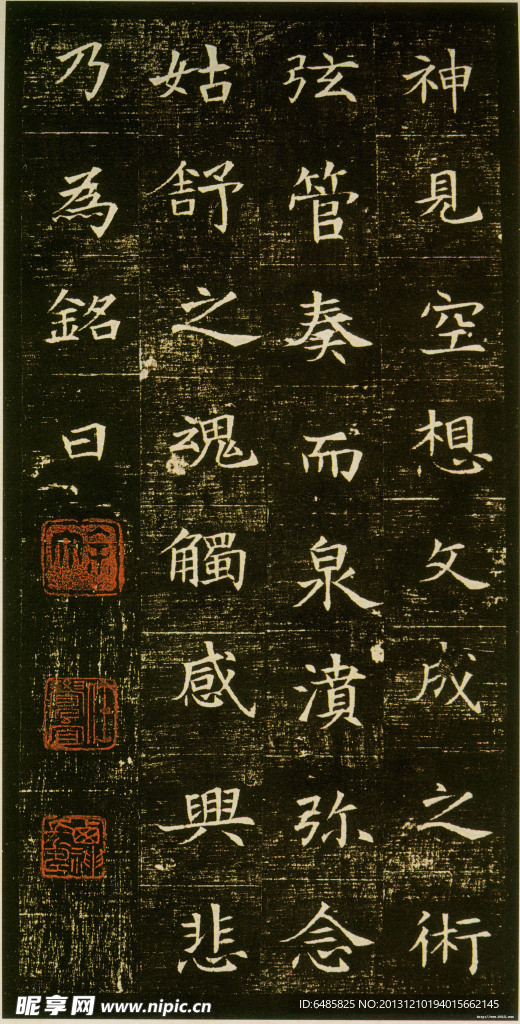 神見空想文成之術
弦管奏而泉濆弥念
姑舒之魂觸感興悲
乃為銘曰
昵享网 www.nipic.cn
ID:6485825 NO:20131210194015662145